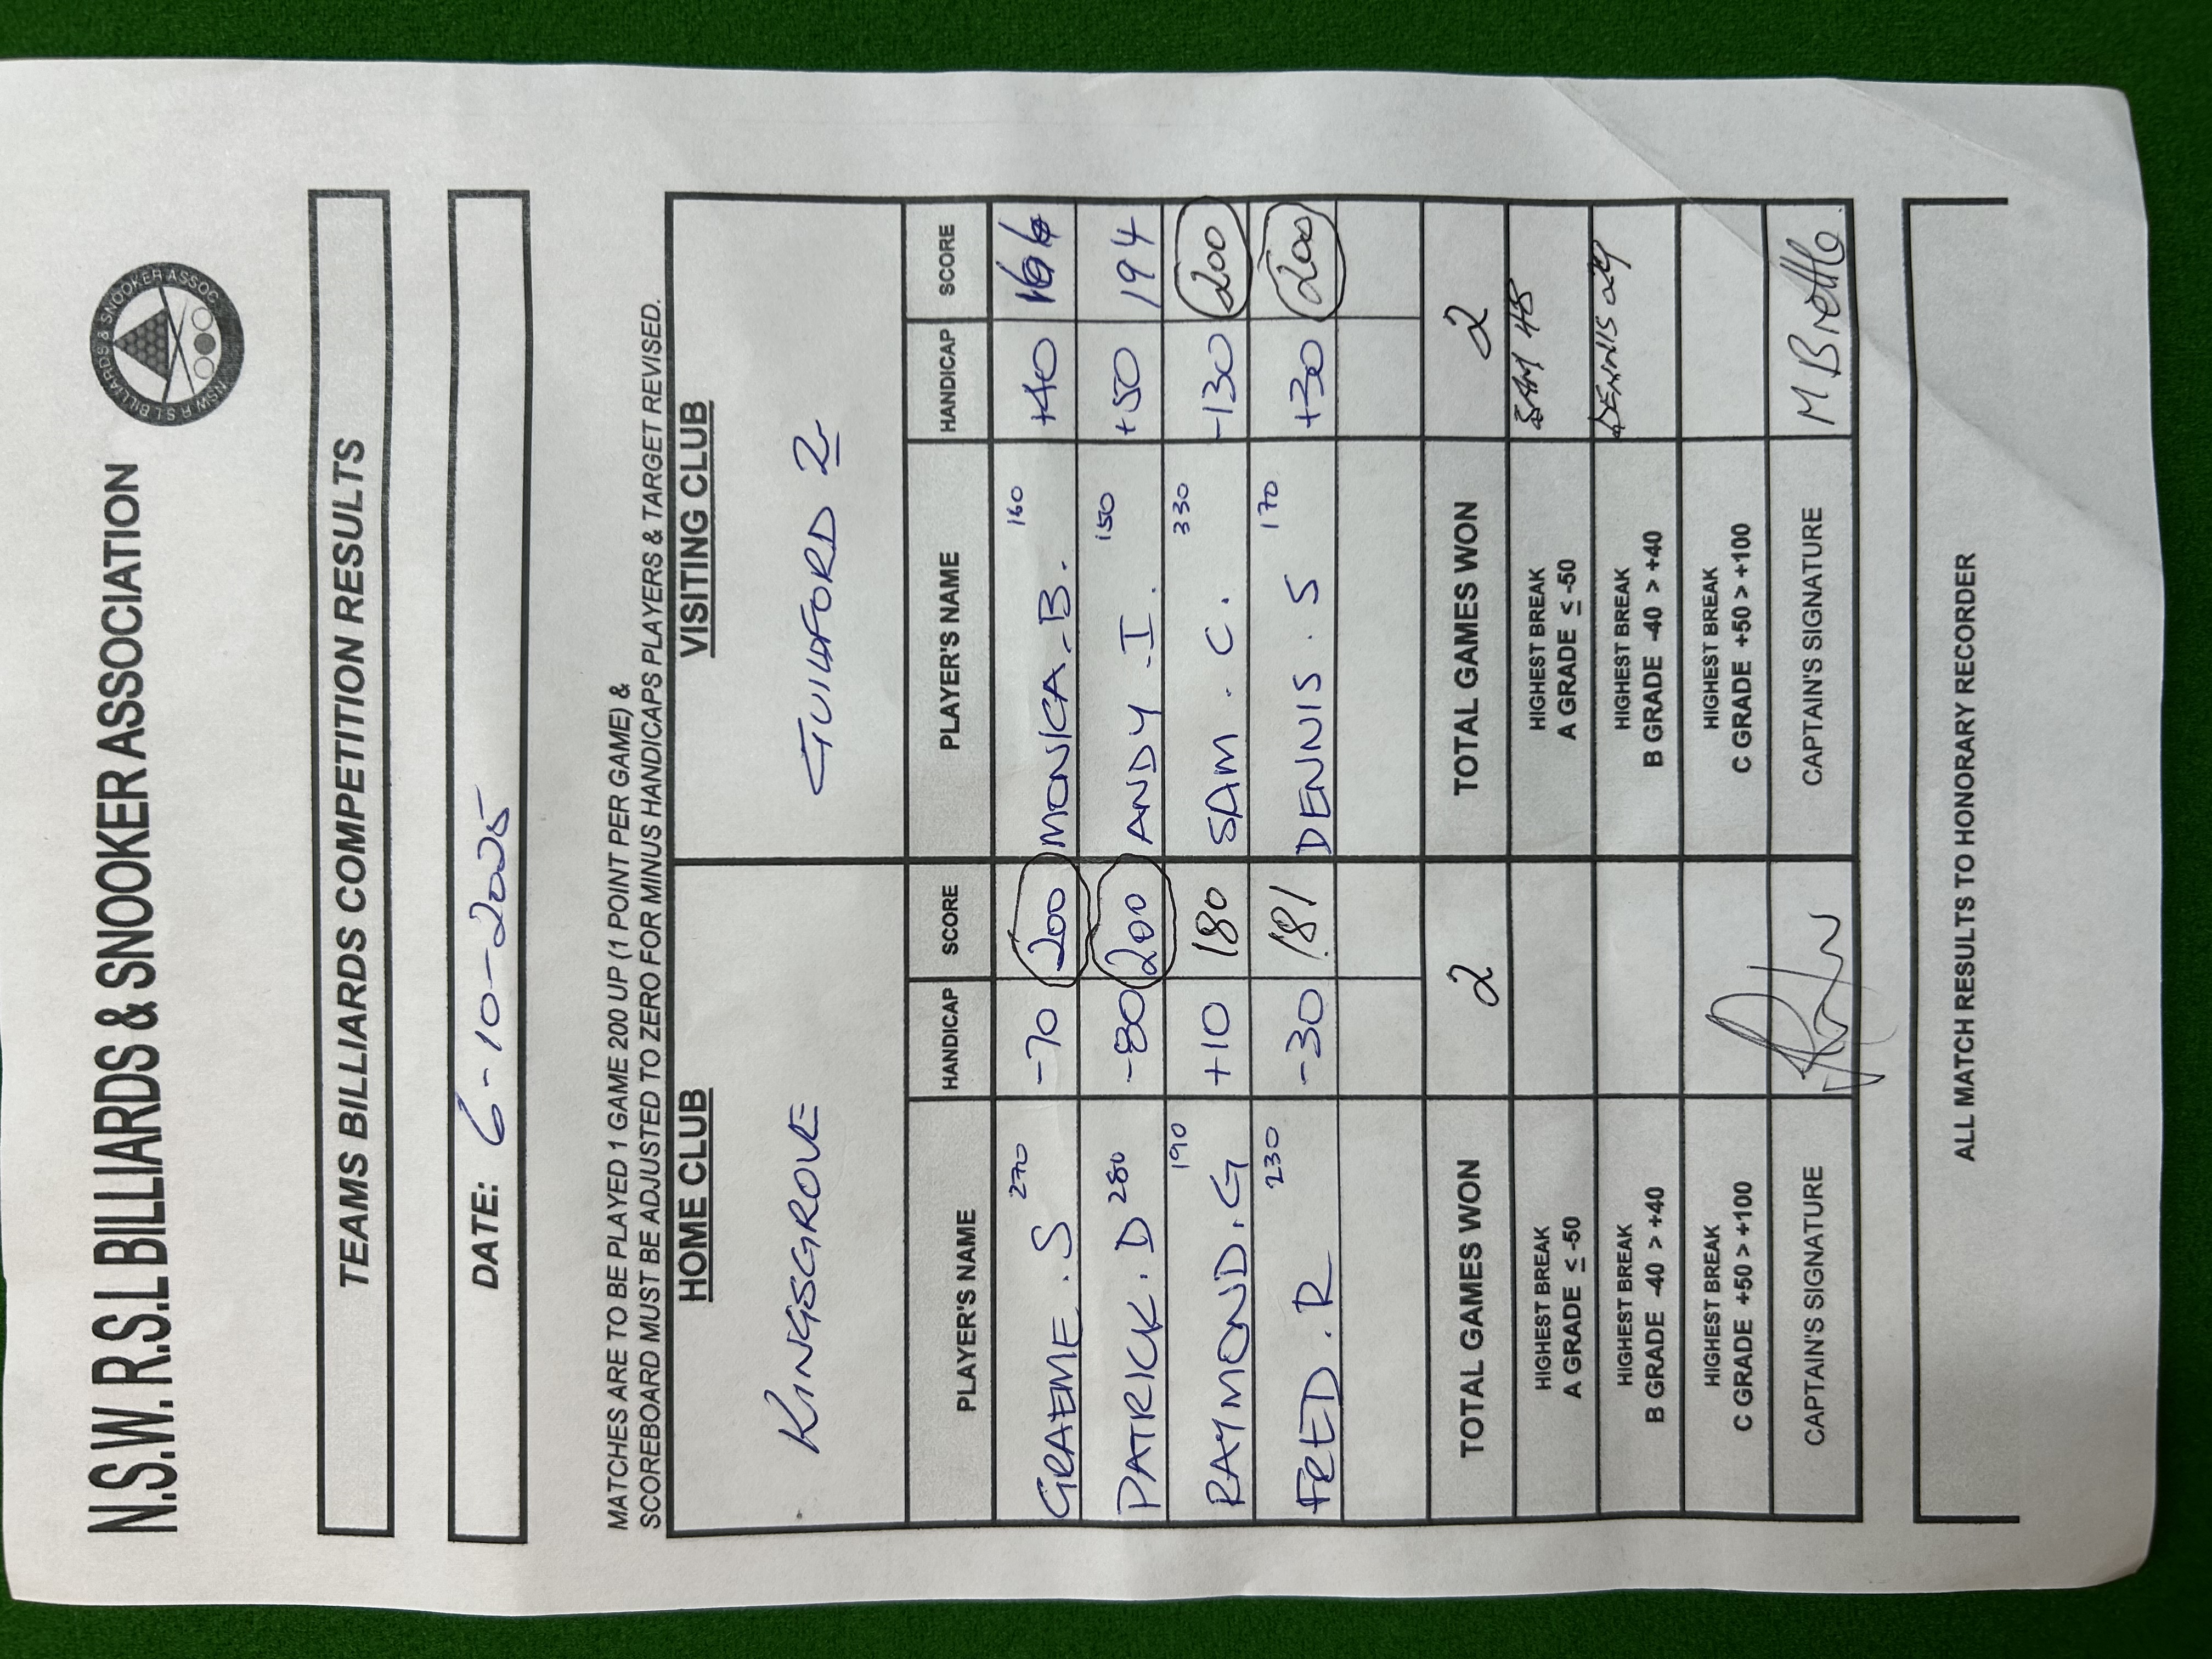 N.S.W. R.S.L BILLIARDS & SNOOKER ASSOCIATION
NSW R S L BILLIARDS & SNOOKER ASSOC
TEAMS BILLIARDS COMPETITION RESULTS
DATE: 6-10-2025
MATCHES ARE TO BE PLAYED 1 GAME 200 UP (1 POINT PER GAME) &
SCOREBOARD MUST BE ADJUSTED TO ZERO FOR MINUS HANDICAPS PLAYERS & TARGET REVISED.
HOME CLUB VISITING CLUB
KINGSGROVE GUILDFORD 2
PLAYER'S NAME HANDICAP SCORE PLAYER'S NAME HANDICAP SCORE
GRAEME.S 270 -70 200 MONICA.B. 160 +40
PATRICK.D 280 -80 200 ANDY.I. 150 +50 194
RAYMOND.G 190 +10 180 SAM.C. 330 -130 200
FRED.R 230 -30 181 DENNIS.S 170 +30 200
TOTAL GAMES WON 2 TOTAL GAMES WON 2
HIGHEST BREAK A GRADE ≤ -50 HIGHEST BREAK A GRADE ≤ -50 SAM 48
HIGHEST BREAK B GRADE -40 > +40 HIGHEST BREAK B GRADE -40 > +40 DENNIS 29
HIGHEST BREAK C GRADE +50 > +100 HIGHEST BREAK C GRADE +50 > +100
CAPTAIN'S SIGNATURE CAPTAIN'S SIGNATURE M Brettle
ALL MATCH RESULTS TO HONORARY RECORDER